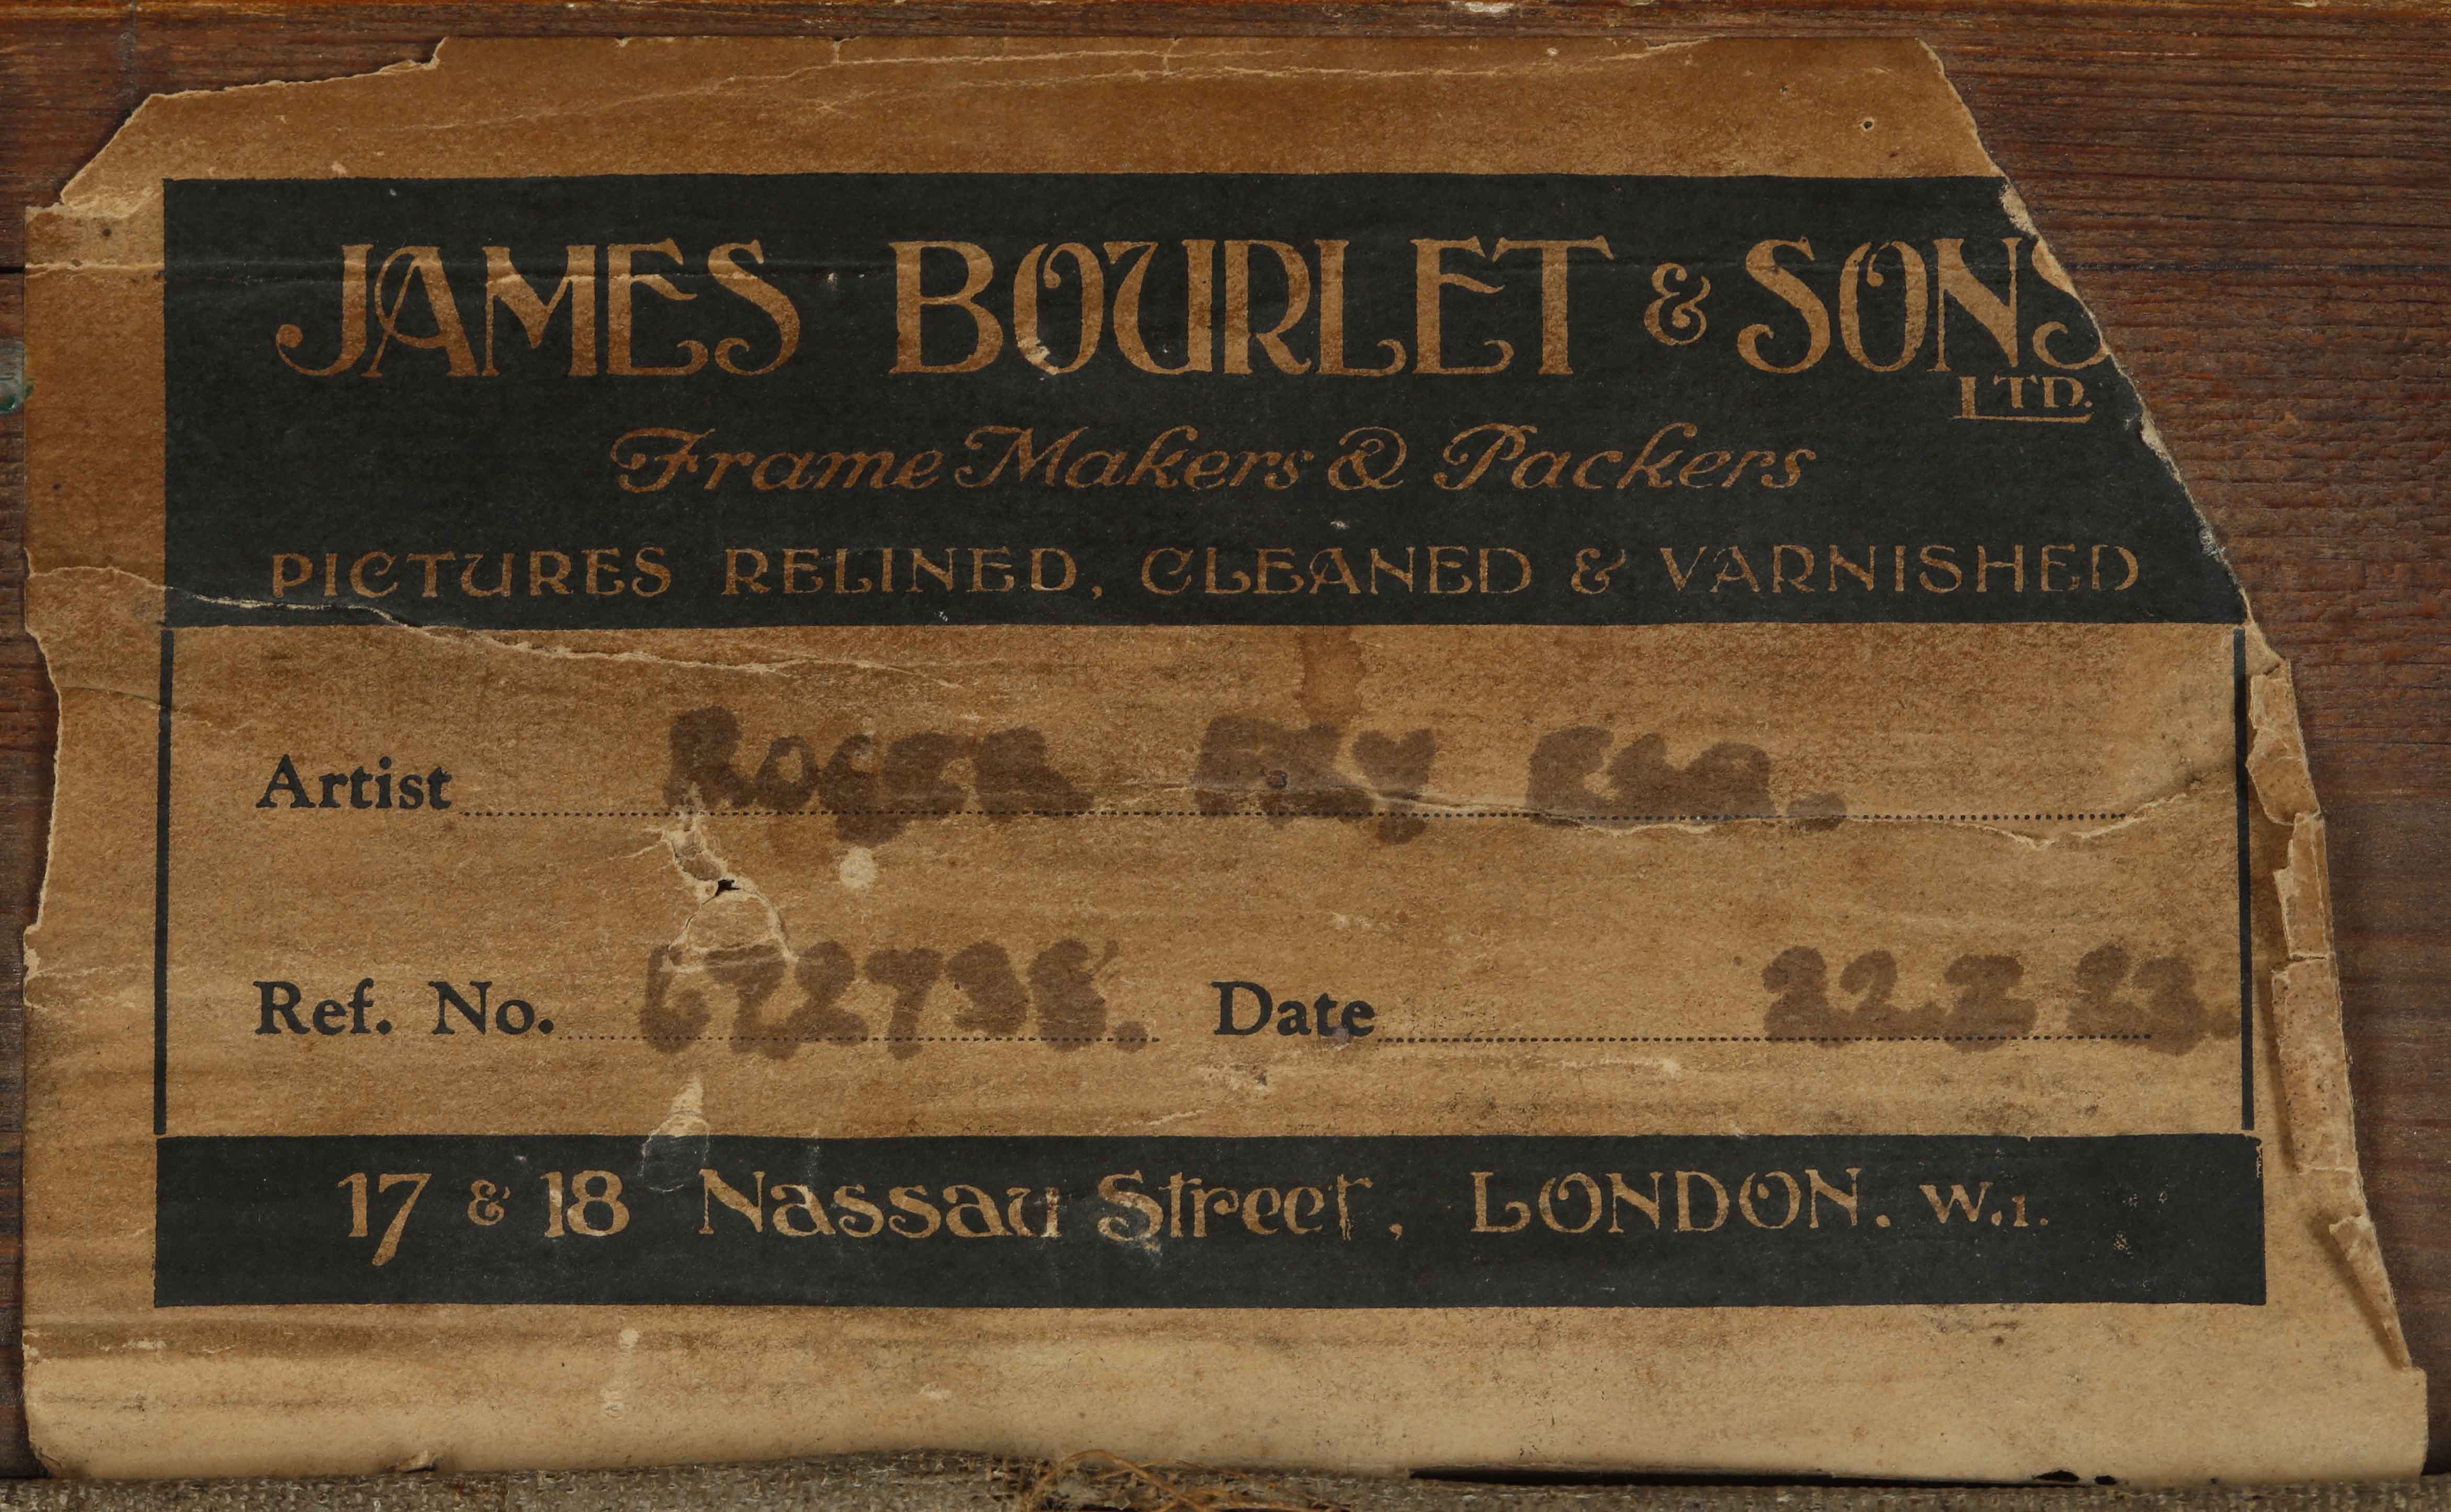 JAMES BOURLET & SONS
LTD.
Frame Makers & Packers
PICTURES RELINED, CLEANED & VARNISHED
Artist ROGER FRY ESQ.
Ref. No. Date
17 & 18 Nassau Street, LONDON. W.1.